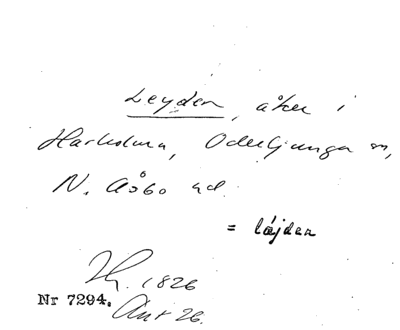 Leyden, åker i
Harkhma, Oderljunga sn,
N. Åsbo hd.
= läjden
1826
Nr 7294. Ant 26.